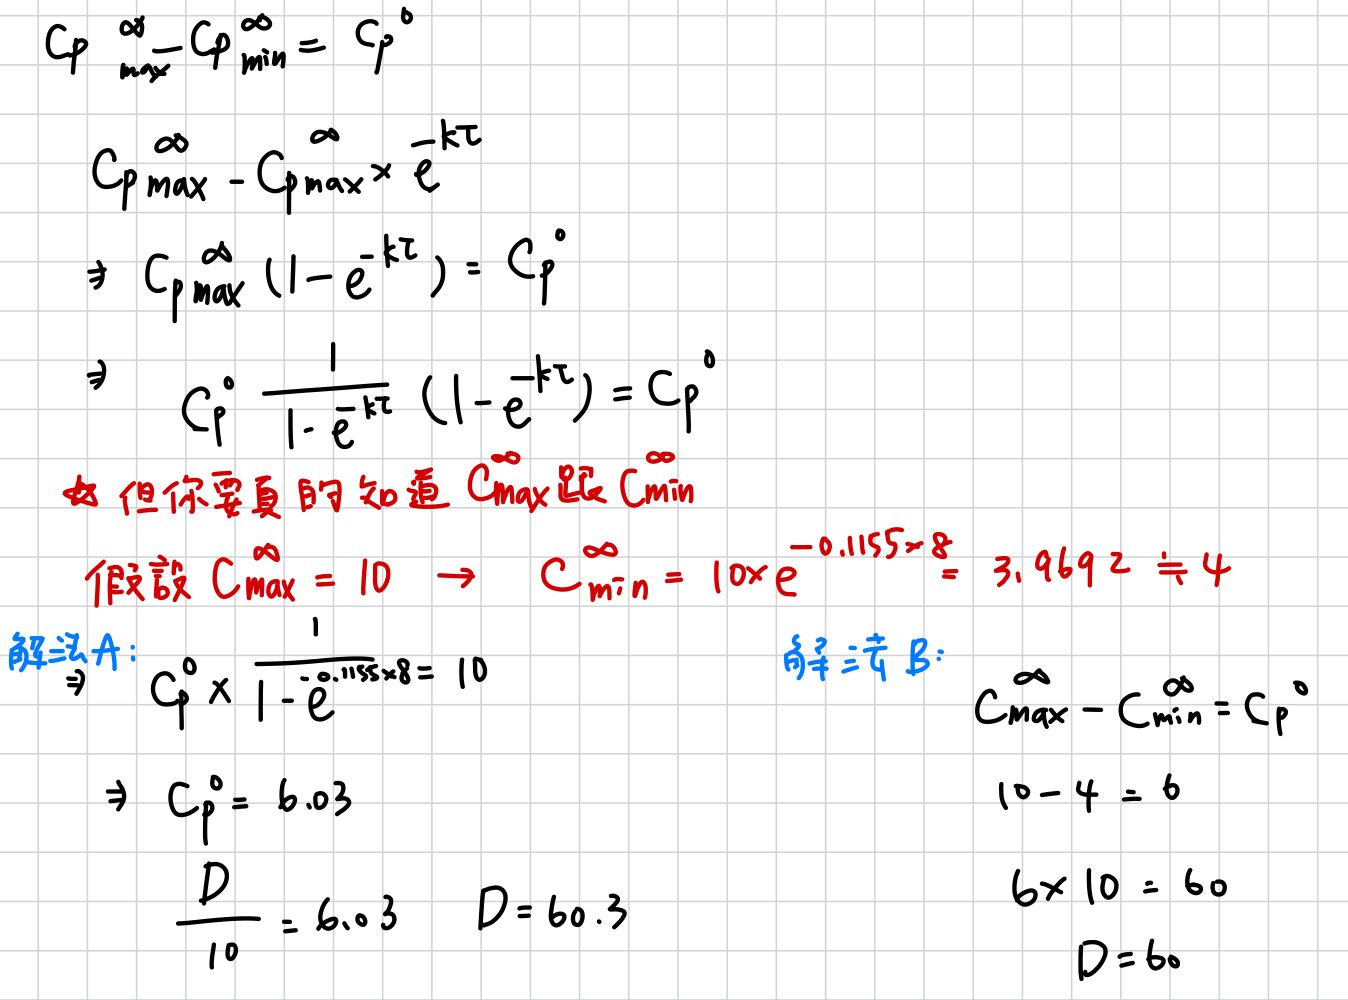 Cp∞max - Cp∞min = Cp⁰
Cp∞max - Cp∞max × e^-kτ
⇒ Cp∞max (1 - e^-kτ) = Cp⁰
⇒ Cp⁰ 1/(1 - e^-kτ) (1 - e^-kτ) = Cp⁰
☆ 但你要真的知道 C∞max 跟 C∞min
假設 C∞max = 10 → C∞min = 10×e^-0.1155×8 = 3.9692 ≒ 4
解法A:
⇒ Cp⁰ × 1/(1 - e^-0.1155×8) = 10
⇒ Cp⁰ = 6.03
D/10 = 6.03 D = 60.3
解法B:
C∞max - C∞min = Cp⁰
10 - 4 = 6
6 × 10 = 60
D = 60